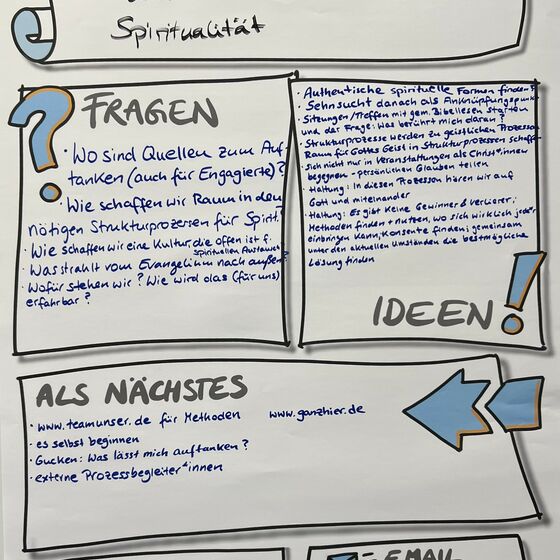 Spiritualität
FRAGEN
• Wo sind Quellen zum Auf-
tanken (auch für Engagierte)?
• Wie schaffen wir Raum in den
nötigen Strukturprozessen für Spirit.?
• Wie schaffen wir eine Kultur, die offen ist f.
spirituellen Austausch
• Was strahlt vom Evangelium nach außen?
• Wofür stehen wir? Wie wird das (für uns)
erfahrbar?
• Authentische spirituelle Formen finden
Sehnsucht danach als Anknüpfungspunkt
• Sitzungen/Treffen mit gem. Bibellesen starten
und der Frage: Was berührt mich daran?
• Strukturprozesse werden zu geistlichen Prozessen
Raum für Gottes Geist in Strukturprozessen schaffen
• Sich nicht nur in Veranstaltungen als Christ*innen
begegnen - persönlichen Glauben teilen.
• Haltung: In diesen Prozessen hören wir auf
Gott und miteinander
• Haltung: Es gibt keine Gewinner & Verlierer;
Methoden finden + nutzen, wo sich wirklich jede*r
einbringen kann; Konsente finden; gemeinsam
unter den aktuellen Umständen die bestmögliche
Lösung finden
IDEEN!
ALS NÄCHSTES
• www.teamunser.de für Methoden www.ganzhier.de
• es selbst beginnen
• Gucken: Was lässt mich auftanken?
• externe Prozessbegleiter*innen
= EMAIL